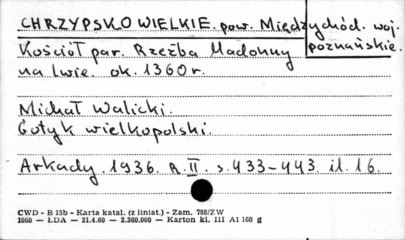 CHRZYPSKO WIELKIE. pow. Międzychód. woj. poznańskie.
Kościół par. Rzeźba Madonny
na lwie. ok. 1360 r.
Michał Walicki.
Gotyk wielkopolski.
Arkady. 1936. R. II. s. 433-443. il. 16.
CWD - B 15b - Karta katal. (z liniat.) - Zam. 788/ZW
1060 — ŁDA — 21.4.60 - 2.360.000 — Karton kl. III A1 160 g